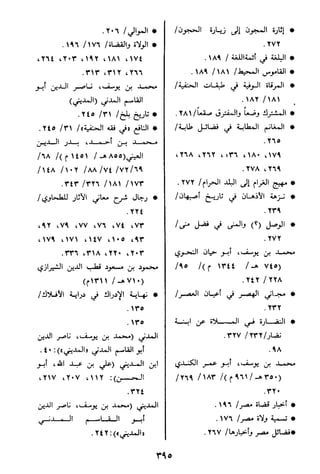 * إثارة الحجون إلى زيارة الحجون/
٢٧٢.
* البلغة في أئمة اللغة / ١٨٩.
* القاموس المحيط/ ١٨١/ ١٨٩.
* المرقاة الوفية في طبقات الحنفية/
١٨١/ ١٨٢.
* المشترك وضعاً والمفترق صقعاً/٢٨١.
* المغانم المطابة في فضائل طابة/
٢٦٥.
١٧٩، ١٨٠، ٢٣٦، ٢٦٢، ٢٦٨،
٢٦٩، ٢٧٨.
* مهيج الغرام إلى البلد الحرام/ ٢٧٢.
* نزهة الأذهان في تاريخ أصبهان/
٢٣٩.
* الوصل (؟) والمنى في فضل منى/
٢٧٢.
محمد بن يوسف، أبو حيان النحوي
(٧٤٥ هـ/ ١٣٤٤ م)/ ٩٥/
٢٢٨/ ٢٤٢.
* مجاني الهصر في أعيان العصر/
٢٣٢.
* النضارة في المسلاة عن ابنة
نضار/٢٣٢/ ٣٢٧.
٩٨.
محمد بن يوسف، أبو عمر الكندي
(٣٥٠ هـ/ ٩٦١ م)/ ١٨٣/ ٢٦٩/
٣٢٠.
* أخبار قضاة مصر/ ١٩٦.
* تسمية ولاة مصر/ ١٧٦.
* فضائل مصر وأخبارها/ ٢٦٧.
* الموالي/ ٢٠٦.
* الولاة والقضاة/ ١٧٦/ ١٩٦.
١٧٤، ١٨١، ١٩٢، ٢٠٣، ٢٦٤،
٢٦٦، ٣١٢، ٣١٣.
محمد بن يوسف، ناصر الدين أبو
القاسم المدني (المديني)
* تاريخ بلخ/ ٣١/ ٢٤٥.
* النافع «في فقه الحنفية»/ ٣١/ ٢٤٥.
محمد بن أحمد، بدر الدين
العيني(٨٥٥ هـ/ ١٤٥١ م)/ ٦٨/
٦٩/ ٧٢/ ٧٤/ ٨٨/ ١٠٢/ ١٤٨/
١٧٣/ ١٨١/ ٣٢٦/ ٣٤٣.
* رجال شرح معاني الآثار للطحاوي/
٢٢٤.
٧٣، ٧٤، ٧٦، ٧٧، ٧٩، ٩٢،
٩٣، ١٠٥، ١٤٧، ١٧١، ١٧٩،
٢٠٣، ٢٢٠، ٣١٨، ٣٣٦.
محمود بن مسعود قطب الدين الشيرازي
(٧١٠ هـ/ ١٣١١م)
* نهاية الإدراك في دراية الأفلاك/
١٣٥.
١٣٥.
المدني (محمد بن يوسف، ناصر الدين
أبو القاسم المدني («المديني»): ٤٠.
ابن المديني (علي بن عبد الله، أبو
الحسن): ١١٢، ٢٠٧، ٢١٧،
٣٢٤.
المديني (محمد بن يوسف، ناصر الدين
أبو القاسم المدني
«المديني»): ٢٤٢.
٣٩٥